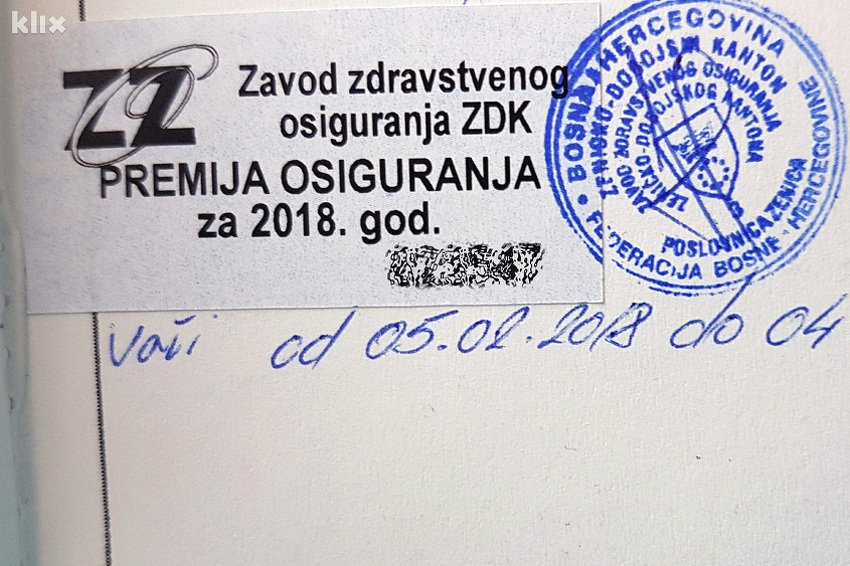 klix
ZZO
Zavod zdravstvenog
osiguranja ZDK
PREMIJA OSIGURANJA
za 2018. god.
BOSNA I HERCEGOVINA
FEDERACIJA BOSNE I HERCEGOVINE
ZENIČKO-DOBOJSKI KANTON
ZAVOD ZDRAVSTVENOG OSIGURANJA
ZENIČKO-DOBOJSKOG KANTONA
POSLOVNICA ZENICA
Važi od 05.02.2018 do 04